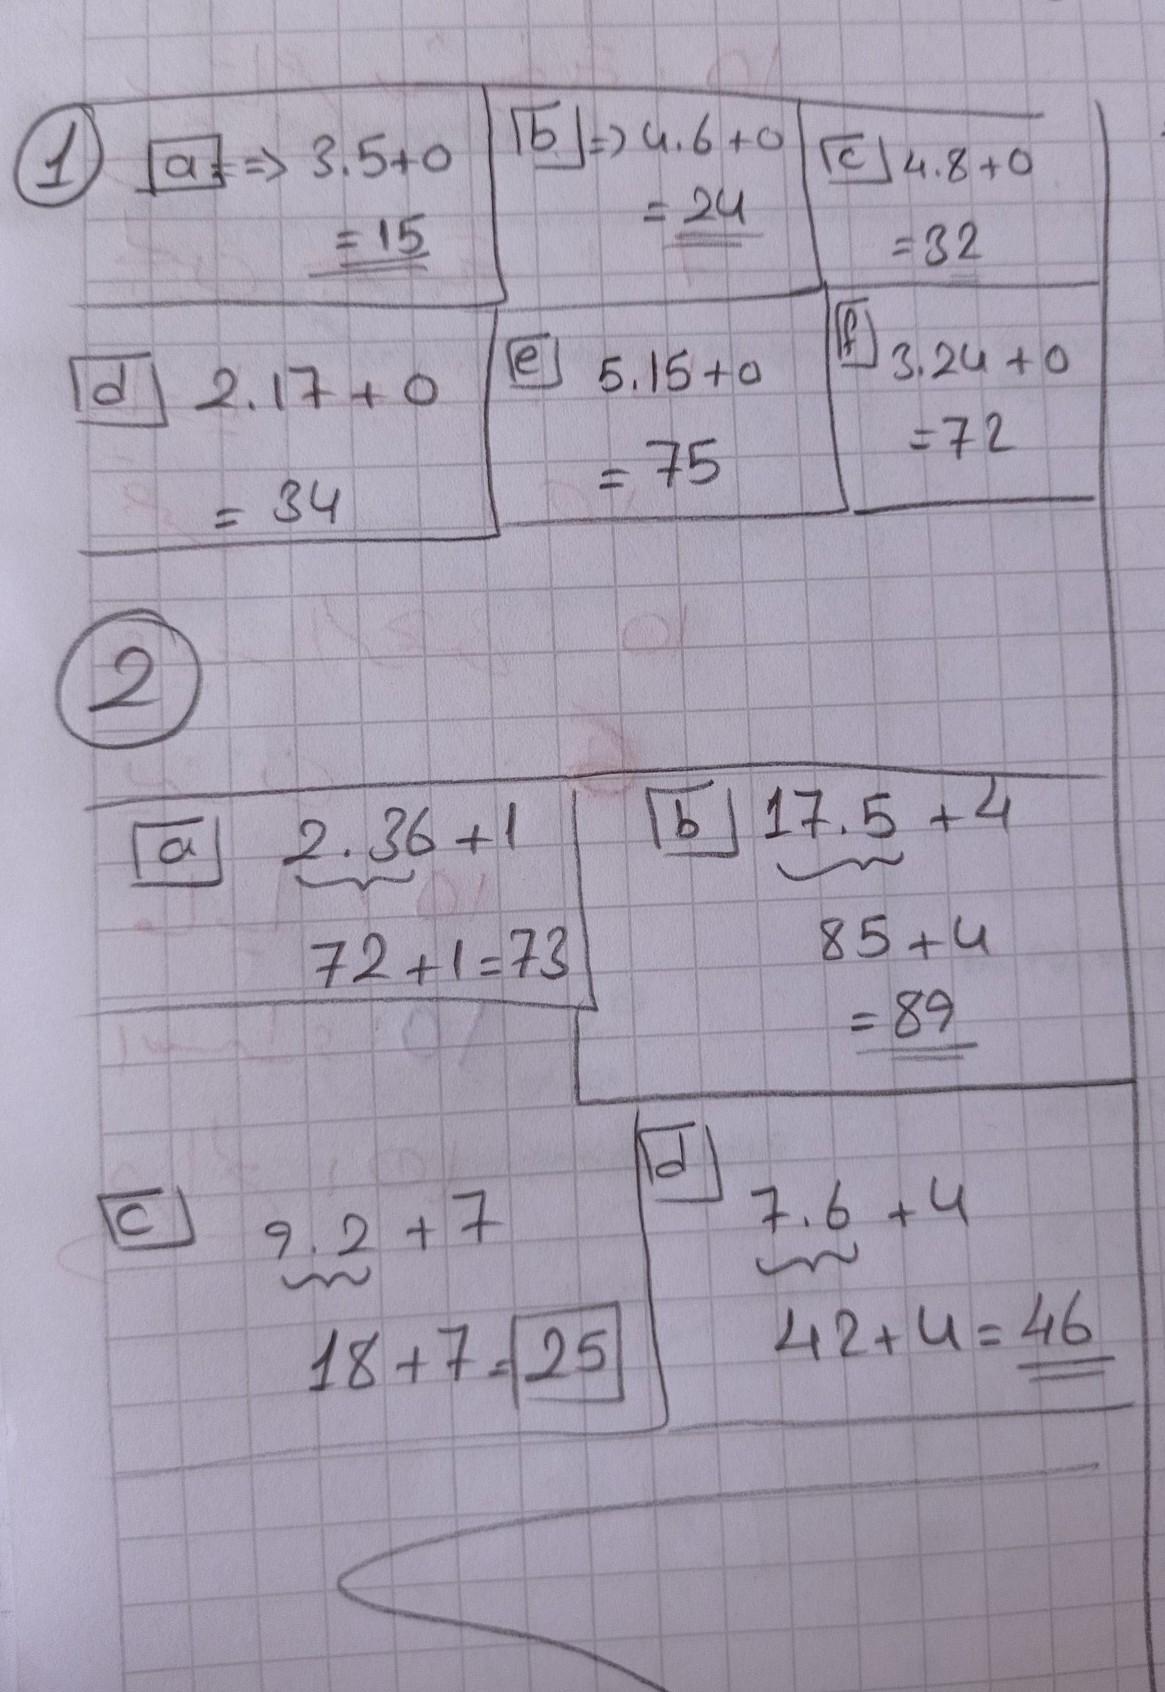 1
a => 3.5+0
= 15
b => 4.6+0
= 24
c 4.8+0
= 32
d 2.17+0
= 34
e 5.15+0
= 75
f 3.24+0
= 72
2
a 2.36+1
72+1=73
b 17.5+4
85+4
= 89
c 9.2+7
18+7=25
d 7.6+4
42+4=46